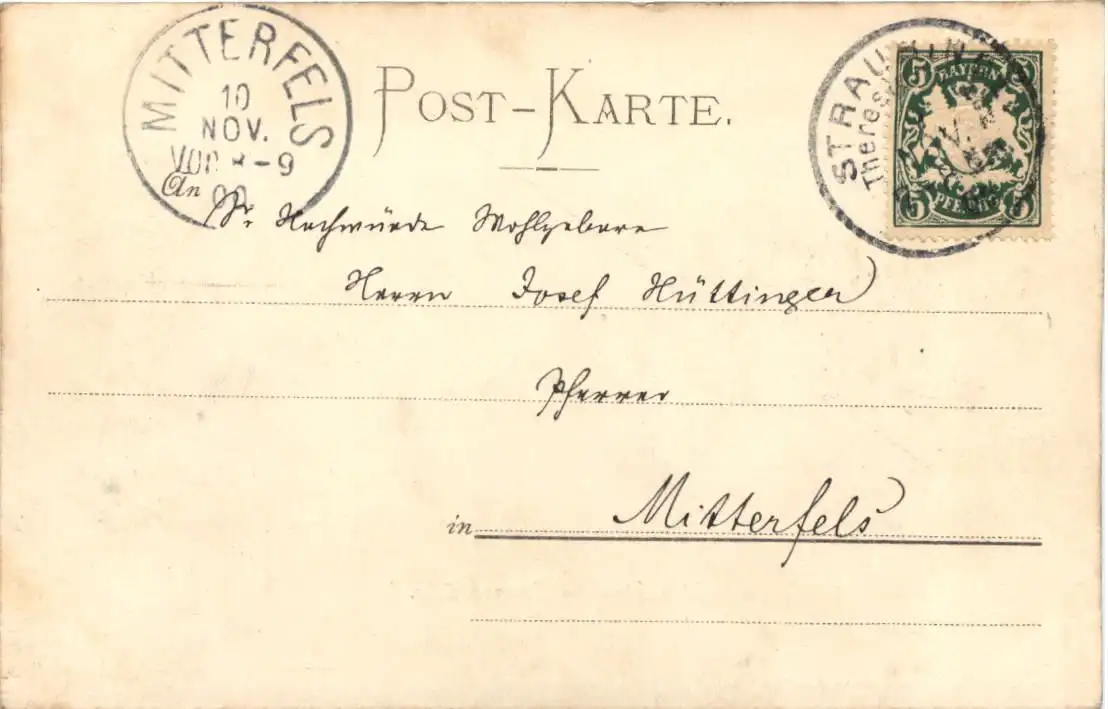 MITTERFELS
10
NOV.
VOR 8-9
00
POST-KARTE.
STRAUBING
BAYERN
5 5
5 PFENNIG 5
An
Sr. Hochwürden Wohlgeboren
Herrn Josef Hüttinger
Pfarrer
in Mitterfels